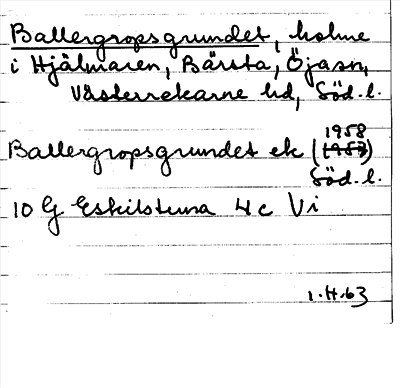 Ballergropsgrundet, holme
i Hjälmaren, Bärsta, Öja sn,
Västerrekarne hd, Söd. l.
1958
Ballergropsgrundet ek (1957)
Söd. l.
10 G Eskilstuna 4 c Vi
1.H.63